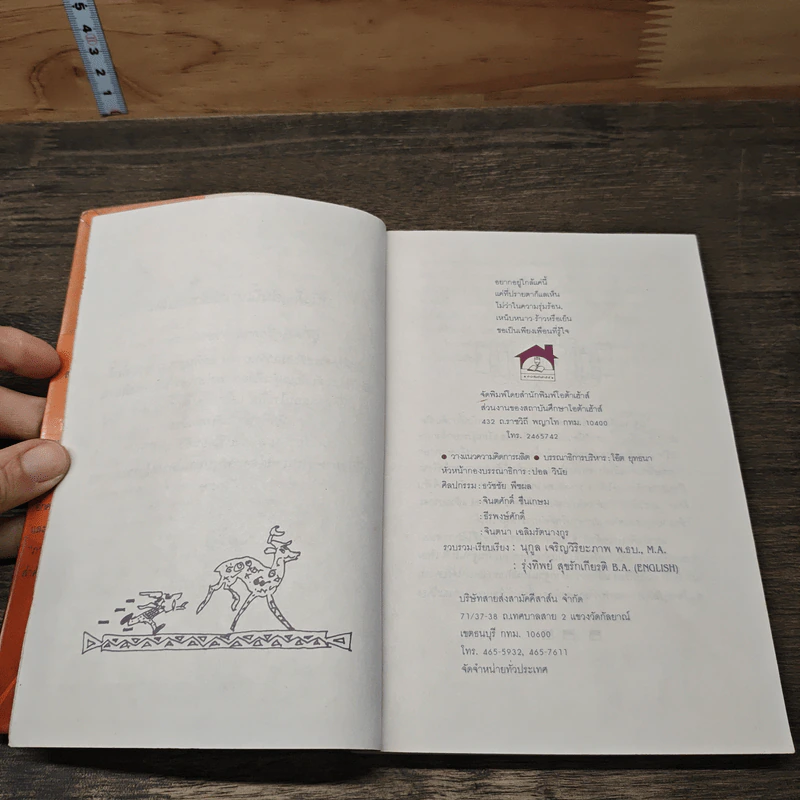 5
4
3
2
1
อยากอยู่ใกล้แค่นี้
แค่ที่ปรายตาก็แลเห็น
ไม่ว่าในความรุ่มร้อน,
เหน็บหนาว-ร้าวหรือเย็น
ขอเป็นเพียงเพื่อนที่รู้ใจ
จัดพิมพ์โดยสำนักพิมพ์โอต้าเฮ้าส์
ส่วนงานของสถาบันศึกษาโอต้าเฮ้าส์
432 ถ.ราชวิถี พญาไท กทม. 10400
โทร. 2465742
● วางแนวความคิดการผลิต ● บรรณาธิการบริหาร : โอ๊ต ยุทธนา
หัวหน้ากองบรรณาธิการ : ปอล วินัย
ศิลปกรรม : ธวัชชัย พืชผล
: จินตศักดิ์ ชื่นเกษม
: ธีรพงษ์ศักดิ์
: จินตนา เฉลิมรัตนางกูร
รวบรวม-เรียบเรียง : นุกูล เจริญวิริยะภาพ พ.ธบ., M.A.
: รุ่งทิพย์ สุขรักเกียรติ B.A. (ENGLISH)
บริษัทสายส่งสามัคคีสาส์น จำกัด
71/37-38 ถ.เทศบาลสาย 2 แขวงวัดกัลยาณ์
เขตธนบุรี กทม. 10600
โทร. 465-5932, 465-7611
จัดจำหน่ายทั่วประเทศ